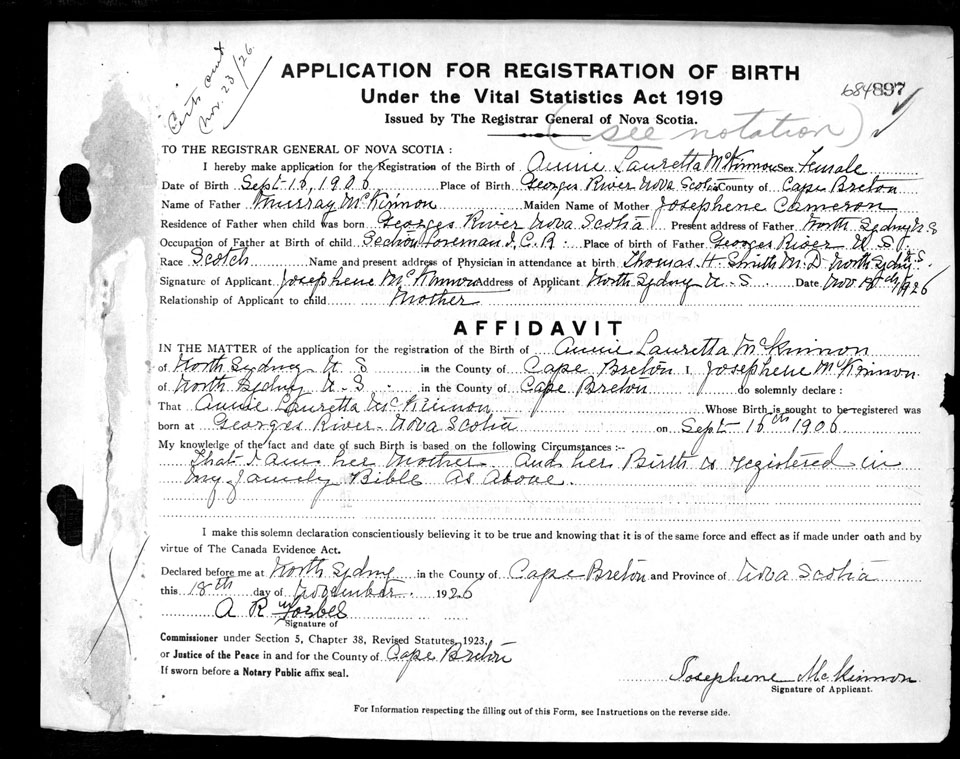 Certs out
Nov. 23/26.
APPLICATION FOR REGISTRATION OF BIRTH
684897
Under the Vital Statistics Act 1919
Issued by The Registrar General of Nova Scotia.
(see notation)
TO THE REGISTRAR GENERAL OF NOVA SCOTIA :
I hereby make application for the Registration of the Birth of Annie Lauretta McKinnon Sex Female
Date of Birth Sept 16, 1906 Place of Birth Georges River Nova Scotia County of Cape Breton
Name of Father Murray McKinnon Maiden Name of Mother Josephene Cameron
Residence of Father when child was born Georges River Nova Scotia Present address of Father North Sydney N.S
Occupation of Father at Birth of child Section Foreman I.C.R. Place of birth of Father Georges River N.S.
Race Scotch Name and present address of Physician in attendance at birth Thomas H. Smith M.D North Sydney N.S.
Signature of Applicant Josephene McKinnon Address of Applicant North Sydney N.S. Date Nov 18th 1926
Relationship of Applicant to child Mother
AFFIDAVIT
IN THE MATTER of the application for the registration of the Birth of Annie Lauretta McKinnon
of North Sydney N.S in the County of Cape Breton I, Josephene McKinnon
of North Sydney N.S in the County of Cape Breton do solemnly declare :
That Annie Lauretta McKinnon Whose Birth is sought to be registered was
born at Georges River - Nova Scotia on Sept 16th 1906
My knowledge of the fact and date of such Birth is based on the following Circumstances :--
That I am her Mother And her Birth is registered in
my family Bible As Above.
I make this solemn declaration conscientiously believing it to be true and knowing that it is of the same force and effect as if made under oath and by
virtue of The Canada Evidence Act.
Declared before me at North Sydney in the County of Cape Breton and Province of Nova Scotia
this 18th day of November 1926
A R Forbes
Signature of
Commissioner under Section 5, Chapter 38, Revised Statutes, 1923,
or Justice of the Peace in and for the County of Cape Breton
If sworn before a Notary Public affix seal.
Josephene McKinnon
Signature of Applicant.
For Information respecting the filling out of this Form, see Instructions on the reverse side.